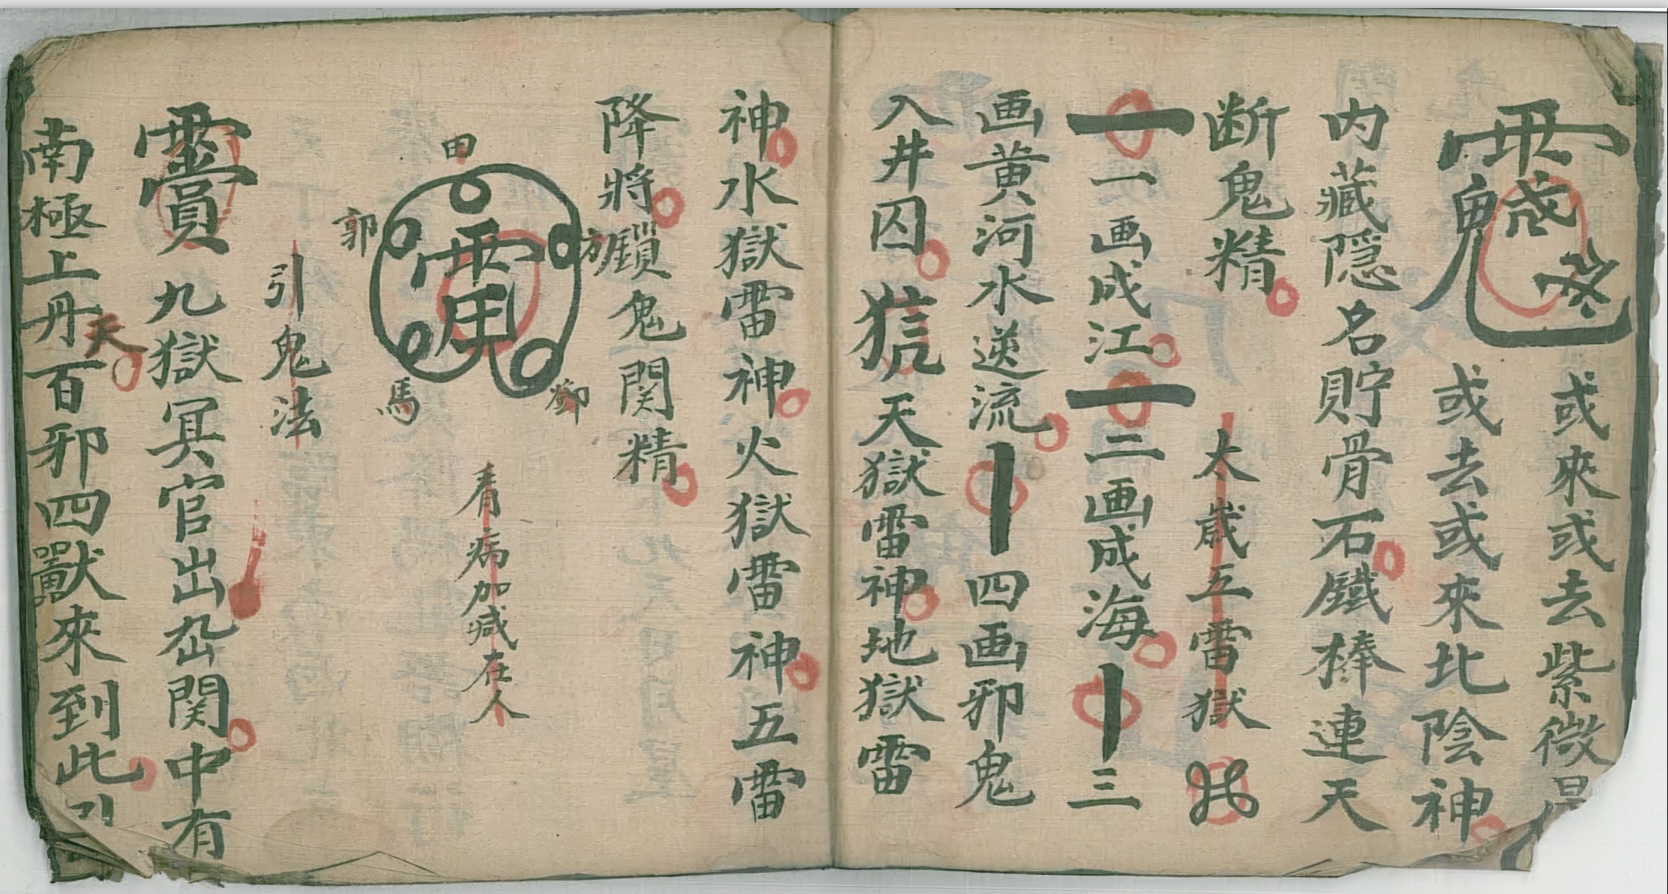 或來或去紫微
或去或來北陰神
内藏隠名貯骨石鐵棒連天
断鬼精
太歲五雷獄
一画成江
二画成海
三
画黄河水逆流
四画邪鬼
入井囚
天獄雷神地獄雷
神水獄雷神火獄雷神五雷
降將鎖鬼関精
田
方
郭
馬
鄧
看病加减在人
引鬼法
九獄冥官出
関中有
南極上丹天百邪四獸來到此